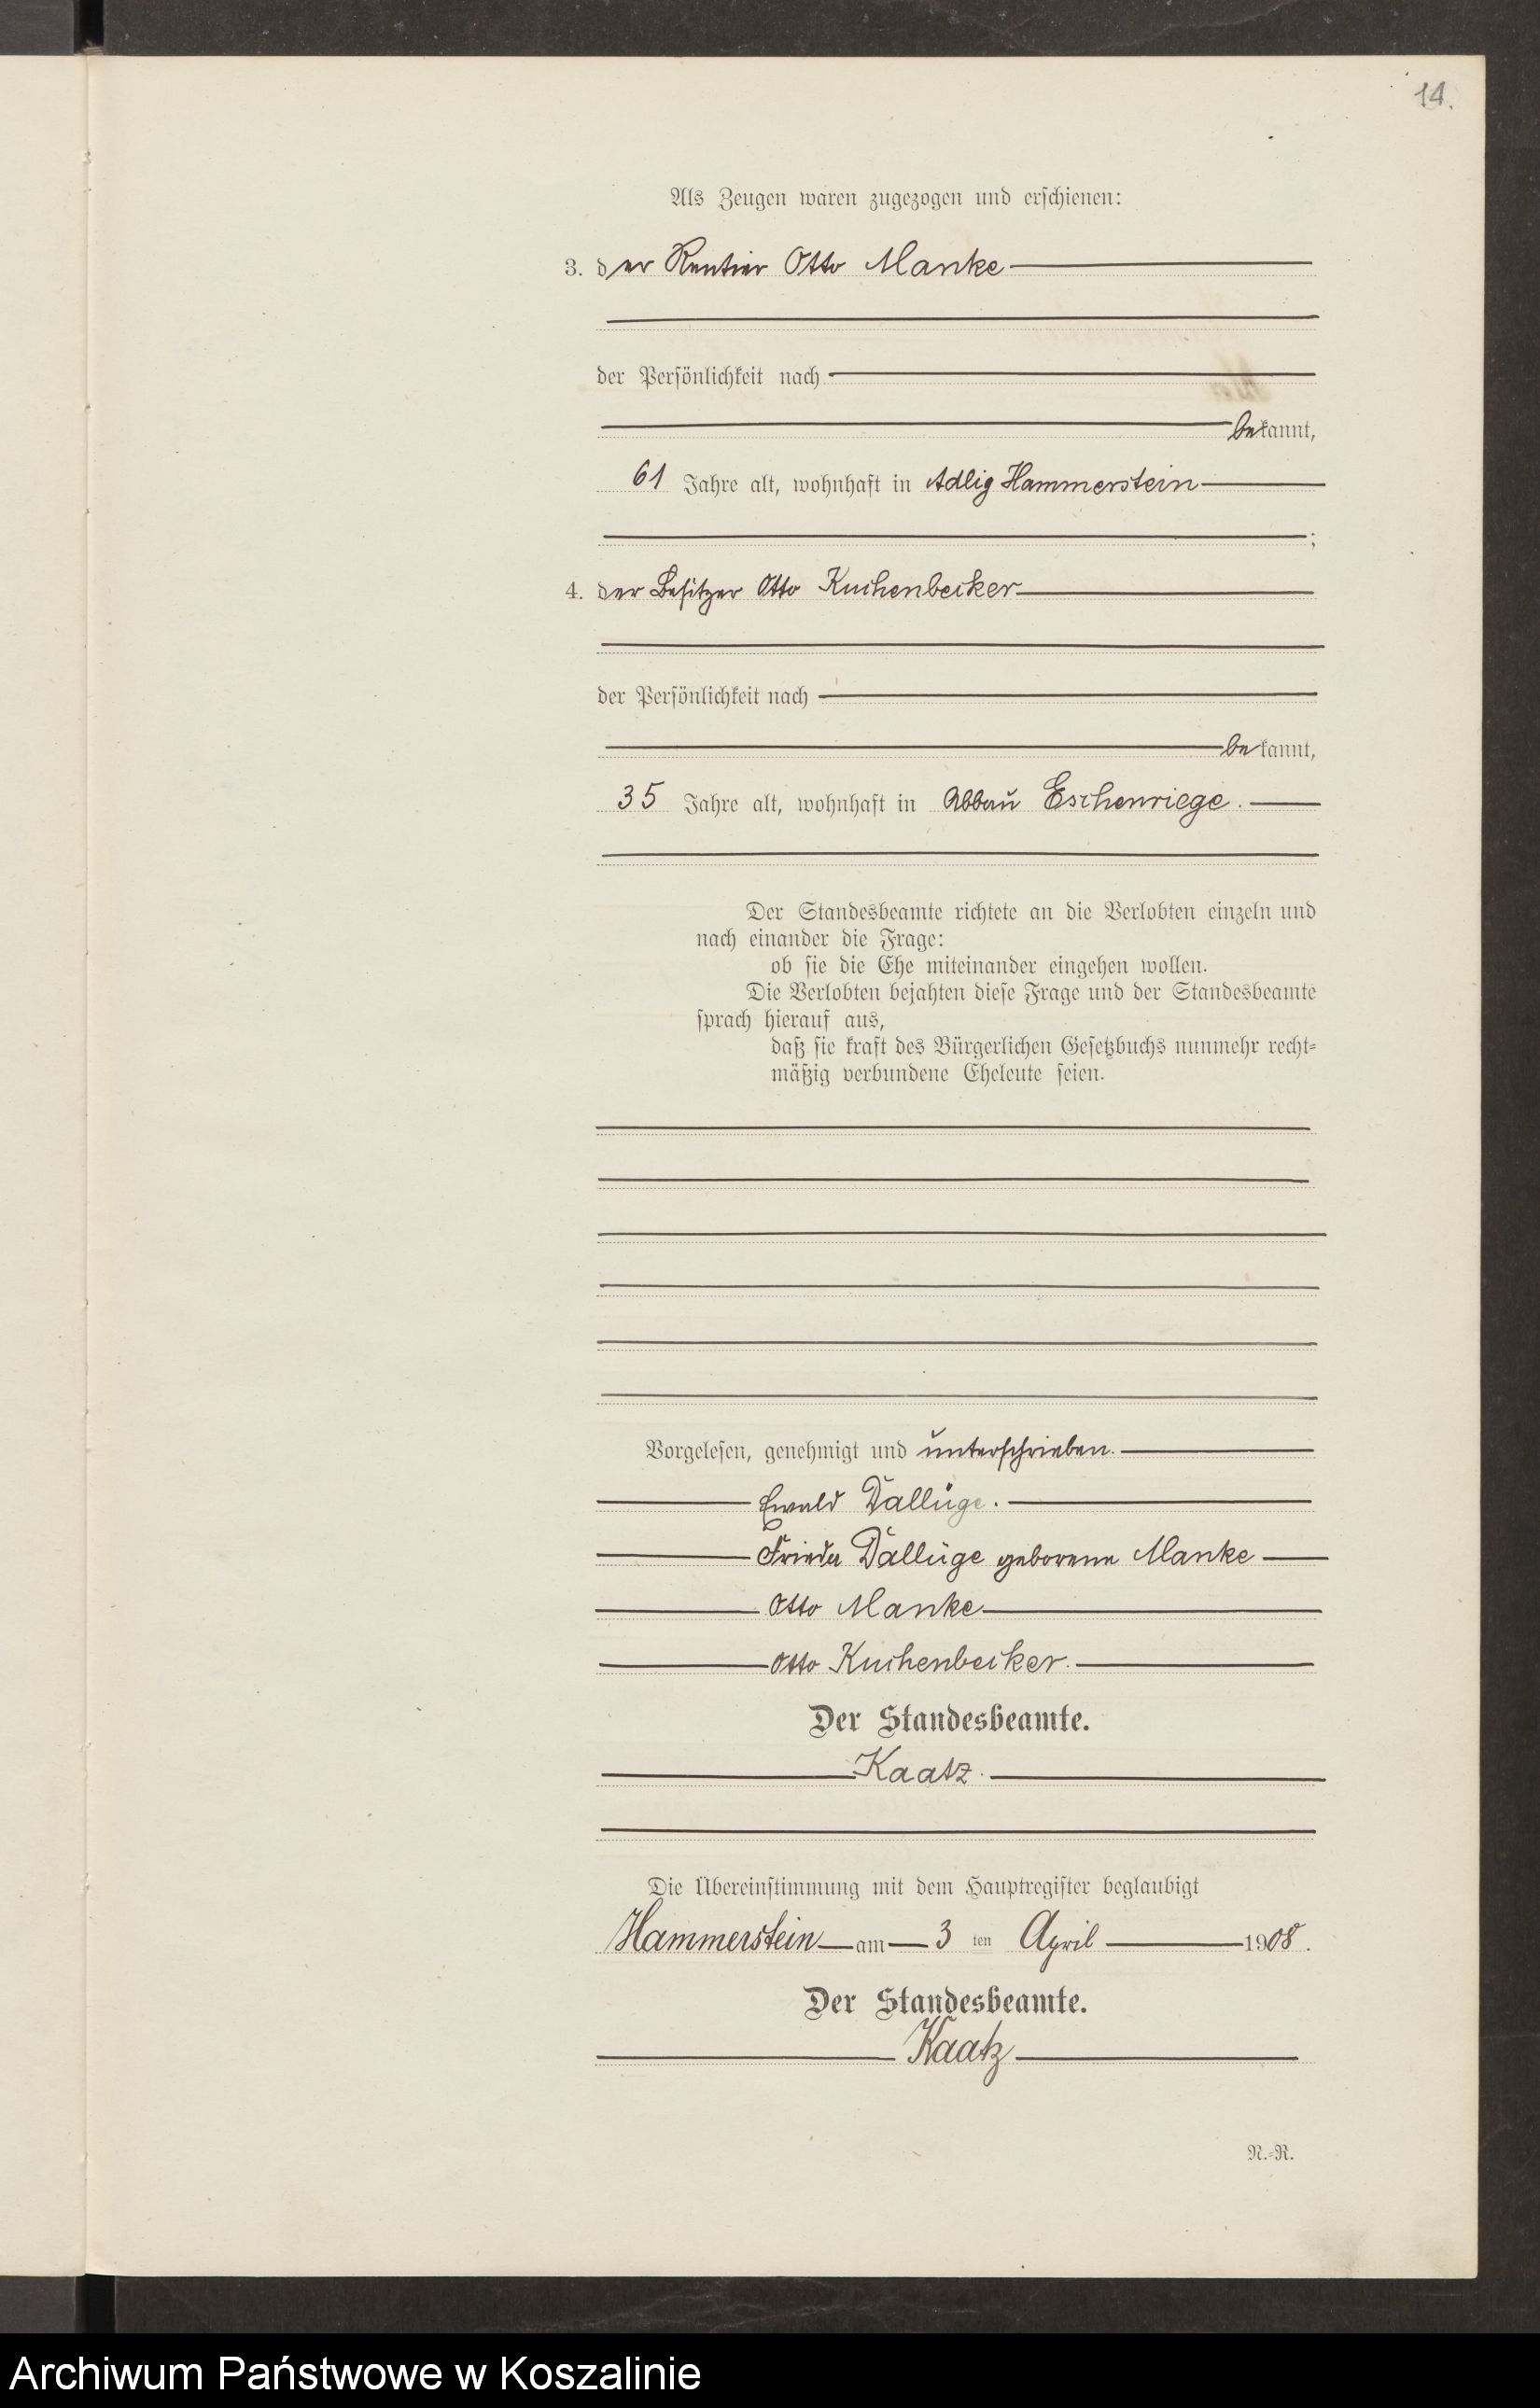 14.
Als Zeugen waren zugezogen und erschienen:
3. der Rentier Otto Manke
der Persönlichkeit nach
bekannt,
61 Jahre alt, wohnhaft in Adlig Hammerstein
;
4. der Besitzer Otto Kuchenbecker
der Persönlichkeit nach
bekannt,
35 Jahre alt, wohnhaft in Abbau Eschenriege.
Der Standesbeamte richtete an die Verlobten einzeln und
nach einander die Frage:
ob sie die Ehe miteinander eingehen wollen.
Die Verlobten bejahten diese Frage und der Standesbeamte
sprach hierauf aus,
daß sie kraft des Bürgerlichen Gesetzbuchs nunmehr recht-
mäßig verbundene Eheleute seien.
Vorgelesen, genehmigt und unterschrieben.
Ewald Dallüge.
Frieda Dallüge geborene Manke
Otto Manke
Otto Kuchenbecker.
Der Standesbeamte.
Kaatz.
Die Übereinstimmung mit dem Hauptregister beglaubigt
Hammerstein am 3 ten April 1908.
Der Standesbeamte.
Kaatz
N.-R.
Archiwum Państwowe w Koszalinie